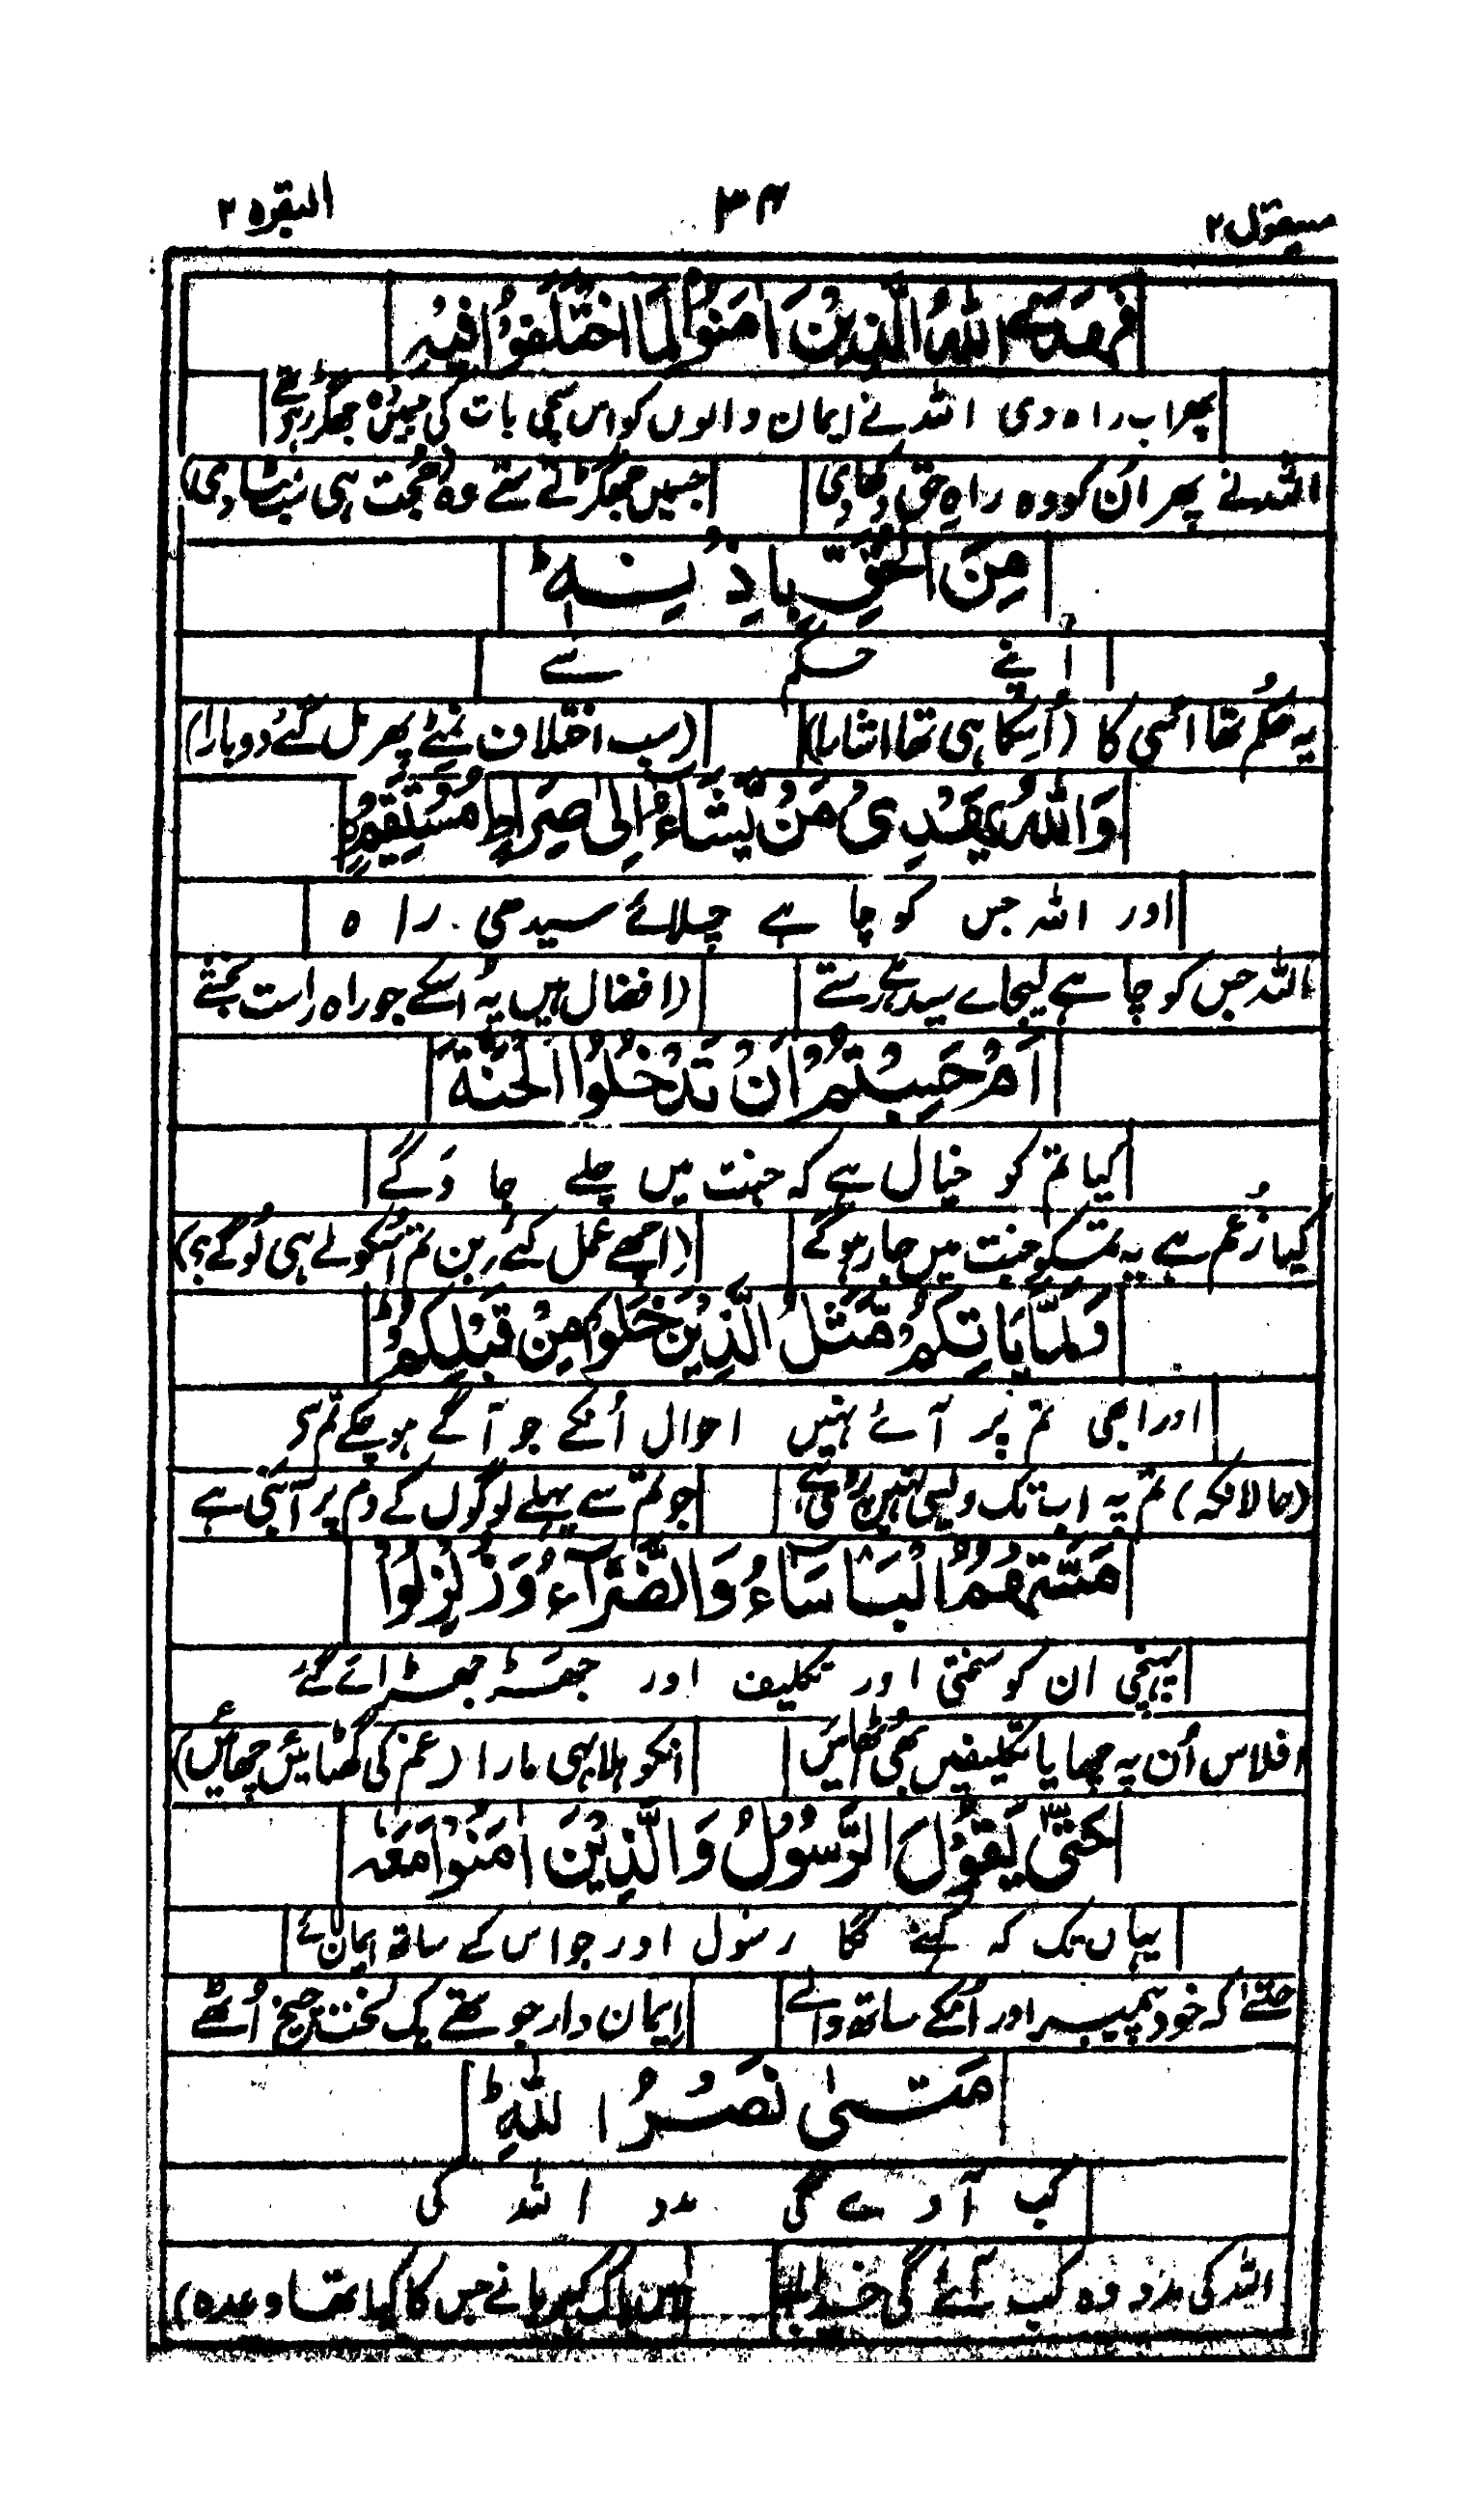 سیقول ۲ ۳۴ البقرہ ۲
فَهَدَى اللّٰهُ الَّذِيْنَ اٰمَنُوْا لِمَا اخْتَلَفُوْا فِيْهِ
پھر اب راہ دی اللہ نے ایمان والوں کو اس سچی بات کی جسمیں وہ جھگڑ رہے تھے
اللہ نے پھر اُن کو وہ راہِ حق دکھا دی جسمیں جھگڑتے تھے وہ (حُجت ہی نبٹا دی)
مِنَ الْحَقِّ بِاِذْنِهٖ ؕ
اپنے حکم سے
یہ حکم تھا اُسی کا (اُسکا ہی تھا اشارا) (سب اختلاف نمٹے پھر مل گئے دوبارا)
وَاللّٰهُ يَهْدِىْ مَنْ يَّشَآءُ اِلٰى صِرَاطٍ مُّسْتَقِيْمٍ
اور اللہ جس کو چاہے چلائے سیدھی راہ
اللہ جس کو چاہے لیجاے سیدھے رستے (افضال ہیں یہ اُسکے جو راہ راست بخشے
اَمْ حَسِبْتُمْ اَنْ تَدْخُلُوا الْجَنَّةَ
کیا تم کو خیال ہے کہ جنت میں چلے جاؤ گے
کیا زُعم ہے یہ تمکو جنت میں جا رہوگے (اچھے عمل کئے بن تم اُسکو لے ہی لوگے؟)
وَلَمَّا يَاْتِكُمْ مَّثَلُ الَّذِيْنَ خَلَوْا مِنْ قَبْلِكُمْ ؕ
اور ابھی تم پر آئے نہیں احوال اُنکے جو آگے ہو چکے تم سے
(حالانکہ) تم پہ اب تک ویسی نہیں پڑی ہے جو تم سے پہلے لوگوں کے دم پر آ بنی ہے
مَسَّتْهُمُ الْبَاْسَآءُ وَالضَّرَّآءُ وَزُلْزِلُوْا
پہنچی ان کو سختی اور تکلیف اور جھڑ جھڑائے گئے
افلاس اُن پہ چھایا تکلیفیں بھی اُٹھائیں انکو ہلا ہی مارا (غم کی گھٹائیں چھائیں)
حَتّٰى يَقُوْلَ الرَّسُوْلُ وَالَّذِيْنَ اٰمَنُوْا مَعَهٗ
یہاں تک کہ کہنے لگا رسول اور جو اس کے ساتھ ایمان لائے
حتےٰ کہ خود پیمبر اور اُنکے ساتھ والے ایمان دار جو تھے یک لخت چیخ اُٹھے
مَتٰى نَصْرُ اللّٰهِ ؕ
کب آوے گی مدد اللہ کی
اللہ کی مدد وہ کب آئے گی نے جس کا کیا تھا وعدہ)